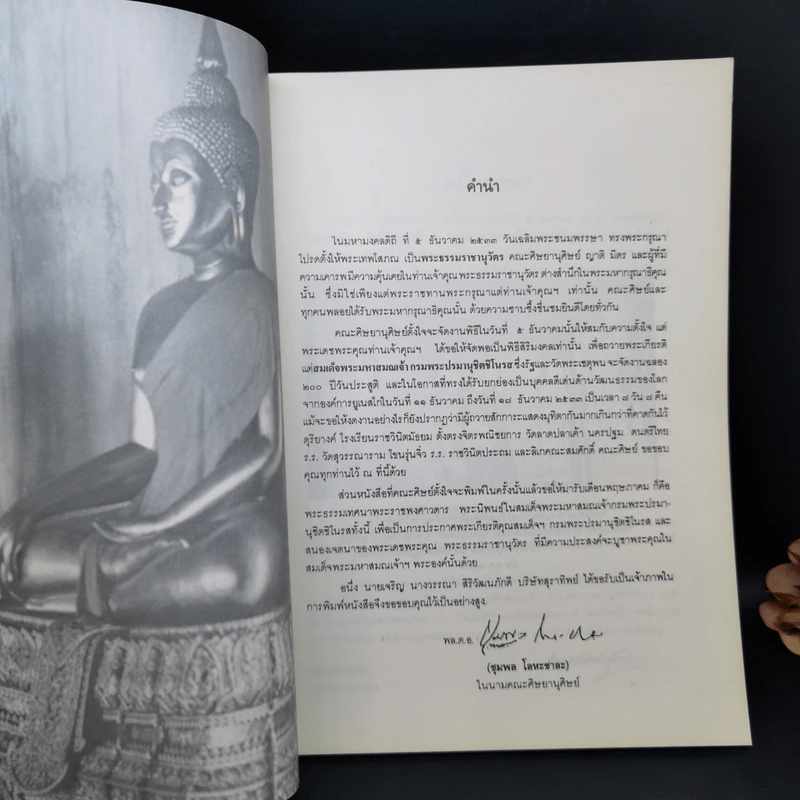 คำนำ
ในมหามงคลดิถี ที่ ๕ ธันวาคม ๒๕๓๓ วันเฉลิมพระชนมพรรษา ทรงพระกรุณา
โปรดตั้งให้พระเทพโสภณ เป็นพระธรรมราชานุวัตร คณะศิษยานุศิษย์ ญาติ มิตร และผู้ที่มี
ความเคารพมีความคุ้นเคยในท่านเจ้าคุณ พระธรรมราชานุวัตร ต่างสำนึกในพระมหากรุณาธิคุณ
นั้น ซึ่งมิใช่เพียงแต่พระราชทานพระกรุณาแต่ท่านเจ้าคุณฯ เท่านั้น คณะศิษย์และ
ทุกคนพลอยได้รับพระมหากรุณาธิคุณนั้น ด้วยความซาบซึ้งชื่นชมยินดีโดยทั่วกัน
คณะศิษยานุศิษย์ตั้งใจจะจัดงานพิธีในวันที่ ๕ ธันวาคมนั้นให้สมกับความตั้งใจ แต่
พระเดชพระคุณท่านเจ้าคุณฯ ได้ขอให้จัดพอเป็นพิธีสิริมงคลเท่านั้น เพื่อถวายพระเกียรติ
แด่สมเด็จพระมหาสมณเจ้า กรมพระปรมานุชิตชิโนรส ซึ่งรัฐและวัดพระเชตุพน จะจัดงานฉลอง
๒๐๐ ปีวันประสูติ และในโอกาสที่ทรงได้รับยกย่องเป็นบุคคลดีเด่นด้านวัฒนธรรมของโลก
จากองค์การยูเนสโกในวันที่ ๑๑ ธันวาคม ถึงวันที่ ๑๗ ธันวาคม ๒๕๓๓ เป็นเวลา ๗ วัน ๗ คืน
แม้จะขอให้งดงานอย่างไรก็ยังปรากฏว่ามีผู้ถวายสักการะแสดงมุทิตากันมากเกินกว่าที่คาดกันไว้
ดุริยางค์ โรงเรียนราชวินิตมัธยม ตั้งตรงจิตรพณิชยการ วัดลาดปลาเค้า นครปฐม ดนตรีไทย
ร.ร. วัดสุวรรณาราม โขนรุ่นจิ๋ว ร.ร. ราชวินิตประถม และลิเกคณะสมศักดิ์ คณะศิษย์ ขอขอบ
คุณทุกท่านไว้ ณ ที่นี้ด้วย
ส่วนหนังสือที่คณะศิษย์ตั้งใจจะพิมพ์ในครั้งนั้นแล้วขอให้มารับเดือนพฤษภาคม ก็คือ
พระธรรมเทศนาพระราชพงศาวดาร พระนิพนธ์ในสมเด็จพระมหาสมณเจ้ากรมพระปรมา-
นุชิตชิโนรสทั้งนี้ เพื่อเป็นการประกาศพระเกียรติคุณสมเด็จฯ กรมพระปรมานุชิตชิโนรส และ
สนองเจตนาของพระเดชพระคุณ พระธรรมราชานุวัตร ที่มีความประสงค์จะบูชาพระคุณใน
สมเด็จพระมหาสมณเจ้าฯ พระองค์นั้นด้วย
อนึ่ง นายเจริญ นางวรรณา สิริวัฒนภักดี บริษัทสุราทิพย์ ได้ขอรับเป็นเจ้าภาพใน
การพิมพ์หนังสือจึงขอขอบคุณไว้เป็นอย่างสูง.
พล.ต.อ.
(ชุมพล โลหะชาละ)
ในนามคณะศิษยานุศิษย์